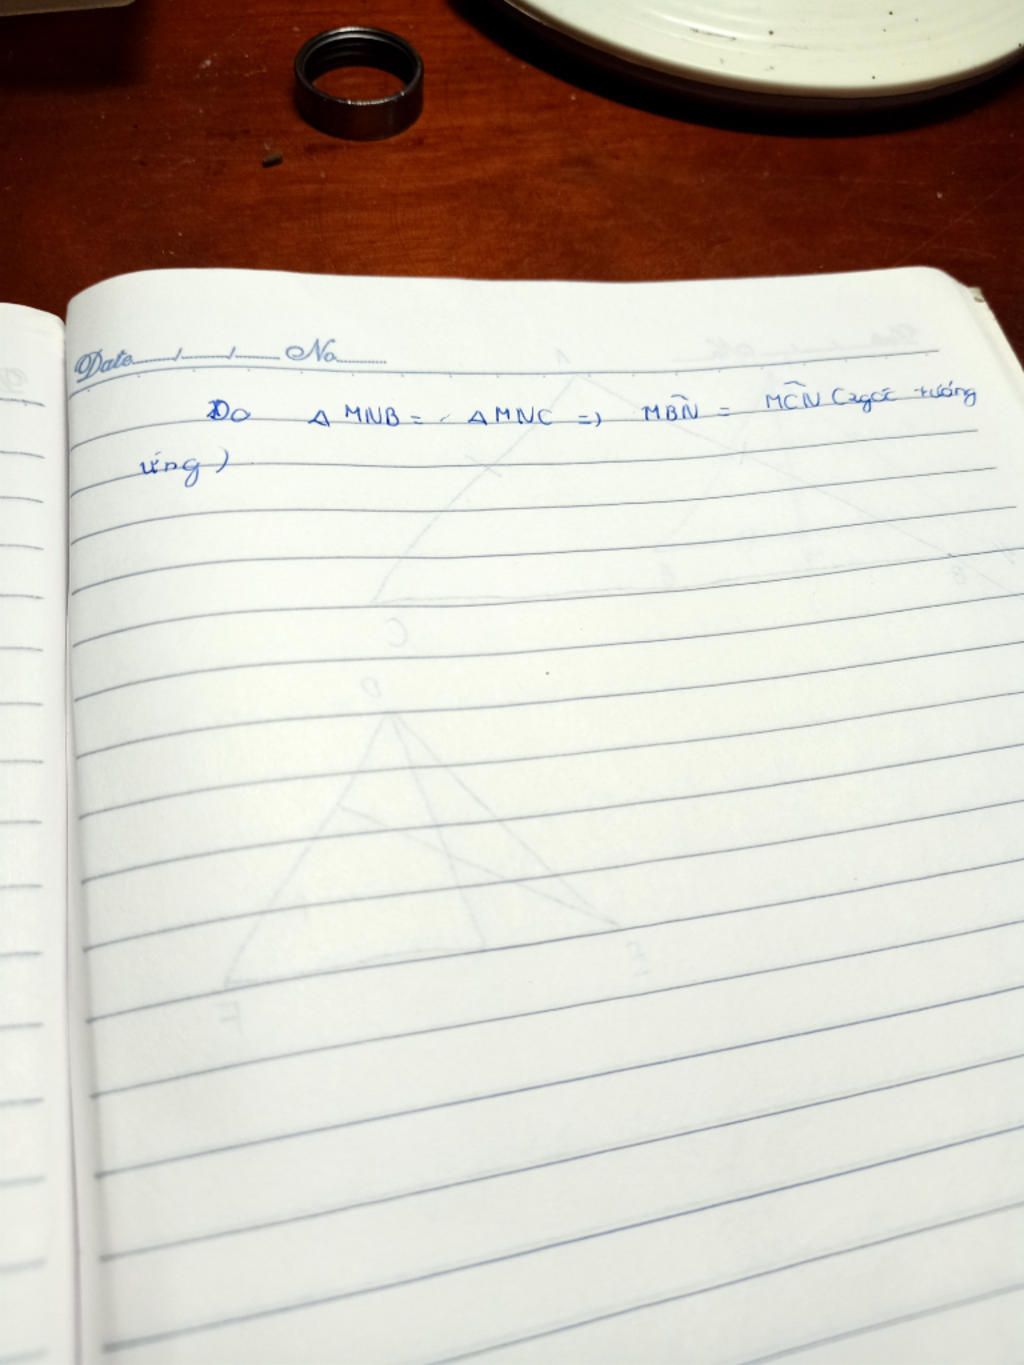 Date / / No
Do Δ MNB = Δ MNC => MB̂N = MĈN (góc tương
ứng)